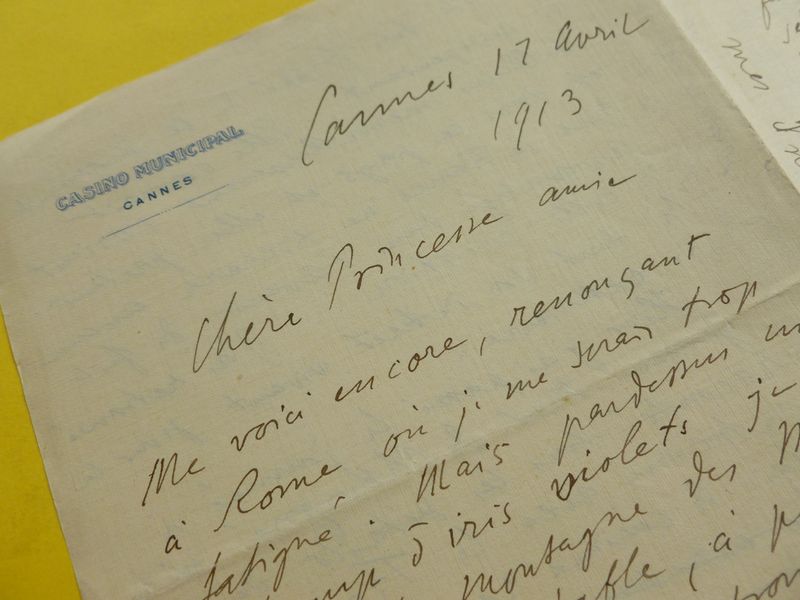 CASINO MUNICIPAL
CANNES
Cannes 17 avril
1913
Chère Princesse amie
Me voici encore, renonçant
à Rome où je me serais trop
fatigué. Mais pardessus un
d'iris violets je
montagne des
à
mes